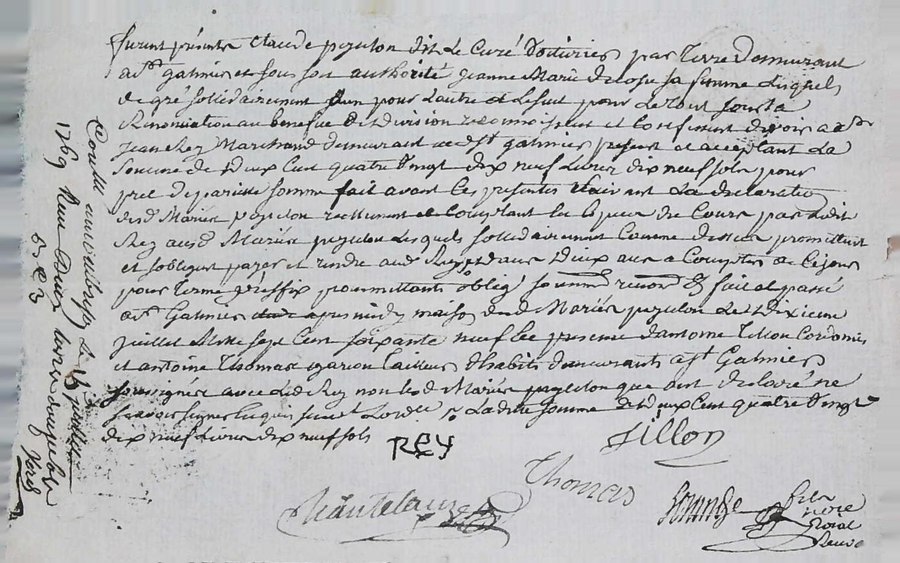 furent présents Claude poyeton dit Le Curé Voiturier par Terre Demeurant
a St galmier et sous son authorité jeanne Marie sa femme Lesquels
de gré solidairement l'un pour Lautre et Leseul pour Le tout sous La
Renonciation au benefice de division reconnoissent et Confessent devoir a Sr
jean Rey Marchand demeurant au dt St galmier present et acceptant La
Somme de Deux Cent quatre Vingt Dix neuf Livres dix neuf sols pour
pret de pareille somme fait avant Ces presentes suivant La declaration
desd Mariés poyeton reellement et Comptant En Especes de Cours par Ledit
Rey ausd Mariés poyeton Lesquels solidairement Comme dessus promettent
et sobligent payer et rendre aud Rey Deux ans a Compter de Cejour
pour Terme preffix promettants oblige soumet renon &c fait et passé
a St Galmier apres midy maison desd Mariés poyeton Le dixieme
juillet Mille sept Cent soixante neuf En presence dantoine Tillon Cordonnier
et antoine Thomas garçon Tailleur d'habits demeurants a St Galmier
soussignés avec Led Rey non Lesd Mariés poyeton que ont declaré ne
scavoir signer Enquis Ladite somme de deux Cent quatre Vingt
dix neuf Livres dix neuf sols
REY
Tillon
Thomas
Chantelauze
fils
nore
Royal
Controllé a Le juillet
1769 Reçu deux Livres